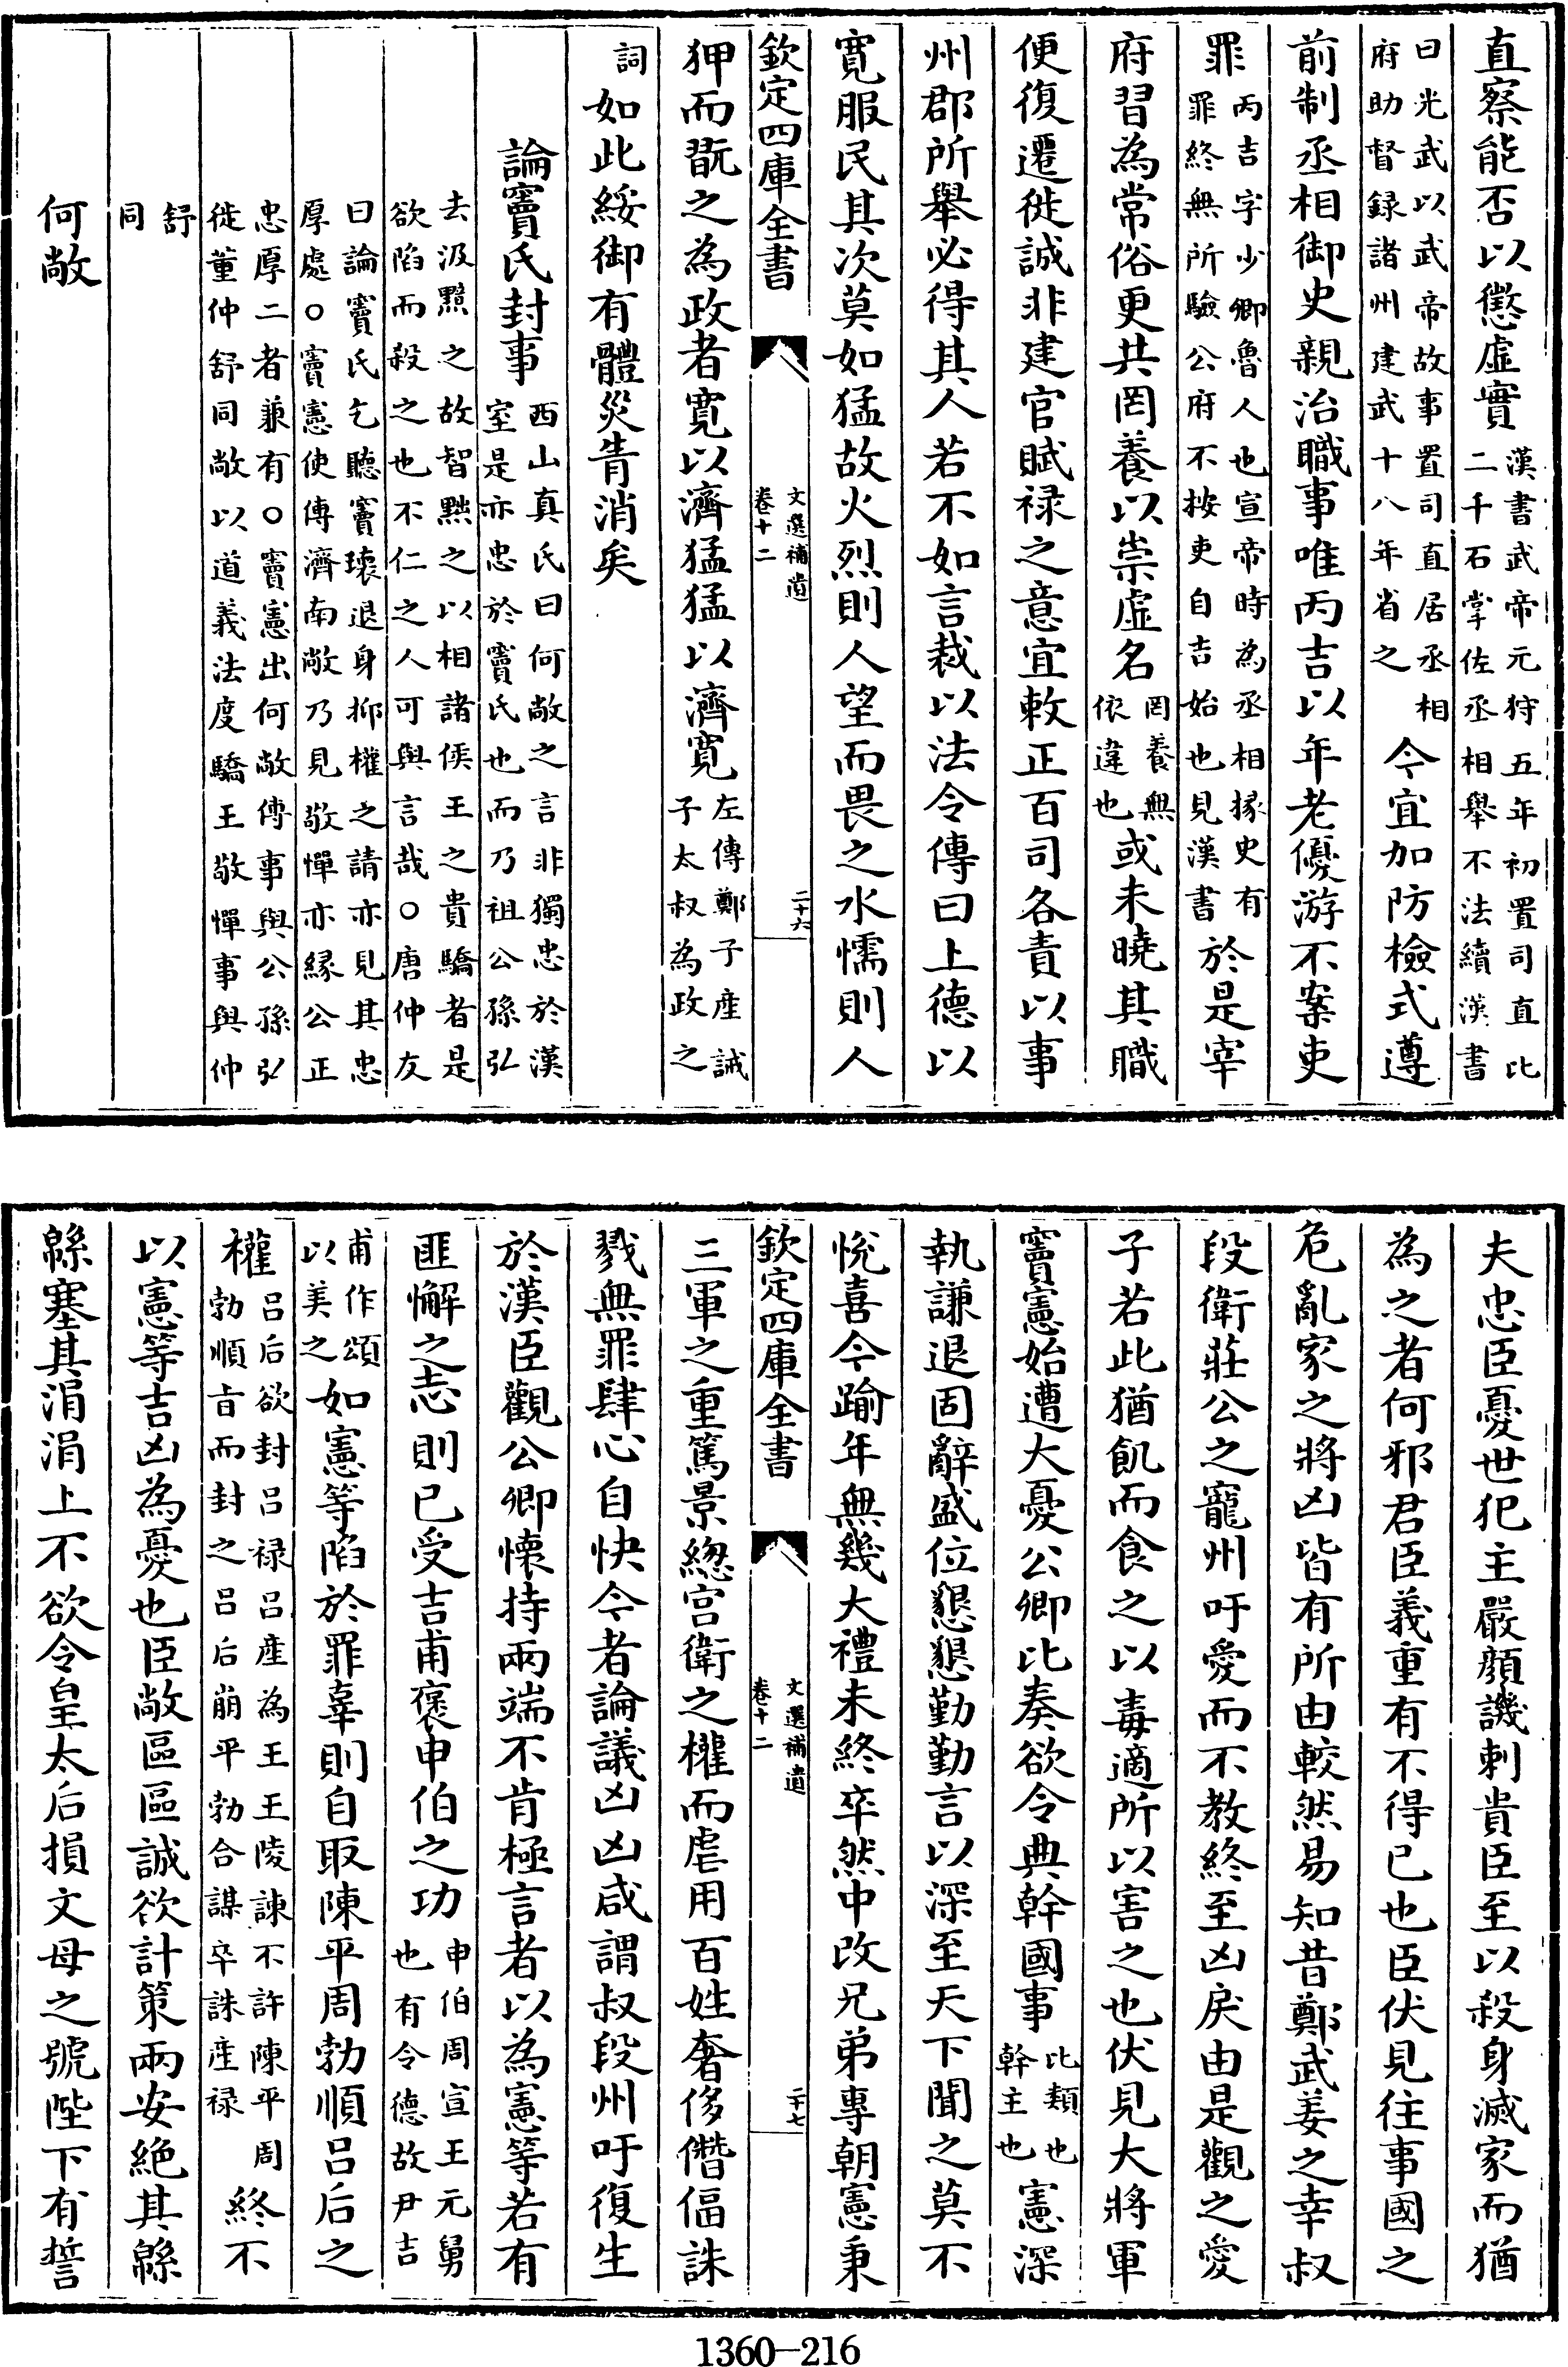 直察能否以懲虛實漢書武帝元狩五年初置司直比二千石掌佐丞相舉不法續漢書
曰光武以武帝故事置司直居丞相府助督録諸州建武十八年省之今宜加防檢式遵
前制丞相御史親治職事唯丙吉以年老優游不案吏
罪丙吉字少卿魯人也宣帝時為丞相掾史有罪終無所驗公府不按吏自吉始也見漢書於是宰
府習為常俗更共罔養以崇虛名罔養無依違也或未曉其職
便復遷徙誠非建官賦禄之意宜敕正百司各責以事
州郡所舉必得其人若不如言裁以法令傳曰上德以
寛服民其次莫如猛故火烈則人望而畏之水懦則人
欽定四庫全書
文選補遺
卷十二
二十六
狎而翫之為政者寛以濟猛猛以濟寛左傳鄭子産誡子太叔為政之
詞如此綏御有體災眚消矣
論竇氏封事西山真氏曰何敞之言非獨忠於漢室是亦忠於竇氏也而乃祖公孫弘
去汲黯之故智黜之以相諸侯王之貴驕者是欲陷而殺之也不仁之人可與言哉○唐仲友
曰論竇氏乞聽竇瓌退身抑權之請亦見其忠厚處○竇憲使傅濟南敞乃見敬憚亦縁公正
忠厚二者兼有○竇憲出何敞傅事與公孫弘徙董仲舒同敞以道義法度驕王敬憚事與仲
舒同
何敞
夫忠臣憂世犯主嚴顔譏刺貴臣至以殺身滅家而猶
為之者何邪君臣義重有不得已也臣伏見往事國之
危亂家之將凶皆有所由較然易知昔鄭武姜之幸叔
段衛莊公之寵州吁愛而不教終至凶戾由是觀之愛
子若此猶飢而食之以毒適所以害之也伏見大將軍
竇憲始遭大憂公卿比奏欲令典幹國事比類也幹主也憲深
執謙退固辭盛位懇懇勤勤言以深至天下聞之莫不
悦喜今踰年無幾大禮未終卒然中改兄弟專朝憲秉
欽定四庫全書
文選補遺
卷十二
二十七
三軍之重篤景緫宫衛之權而虐用百姓奢侈僭偪誅
戮無罪肆心自快今者論議凶凶咸謂叔段州吁復生
於漢臣觀公卿懷持兩端不肯極言者以為憲等若有
匪懈之志則已受吉甫褒申伯之功申伯周宣王元舅也有令德故尹吉
甫作頌以美之如憲等陷於罪辜則自取陳平周勃順吕后之
權吕后欲封吕禄吕産為王王陵諫不許陳平周勃順旨而封之吕后崩平勃合謀卒誅産禄終不
以憲等吉凶為憂也臣敞區區誠欲計策兩安絶其緜
緜塞其涓涓上不欲令皇太后損文母之號陛下有誓
1360-216